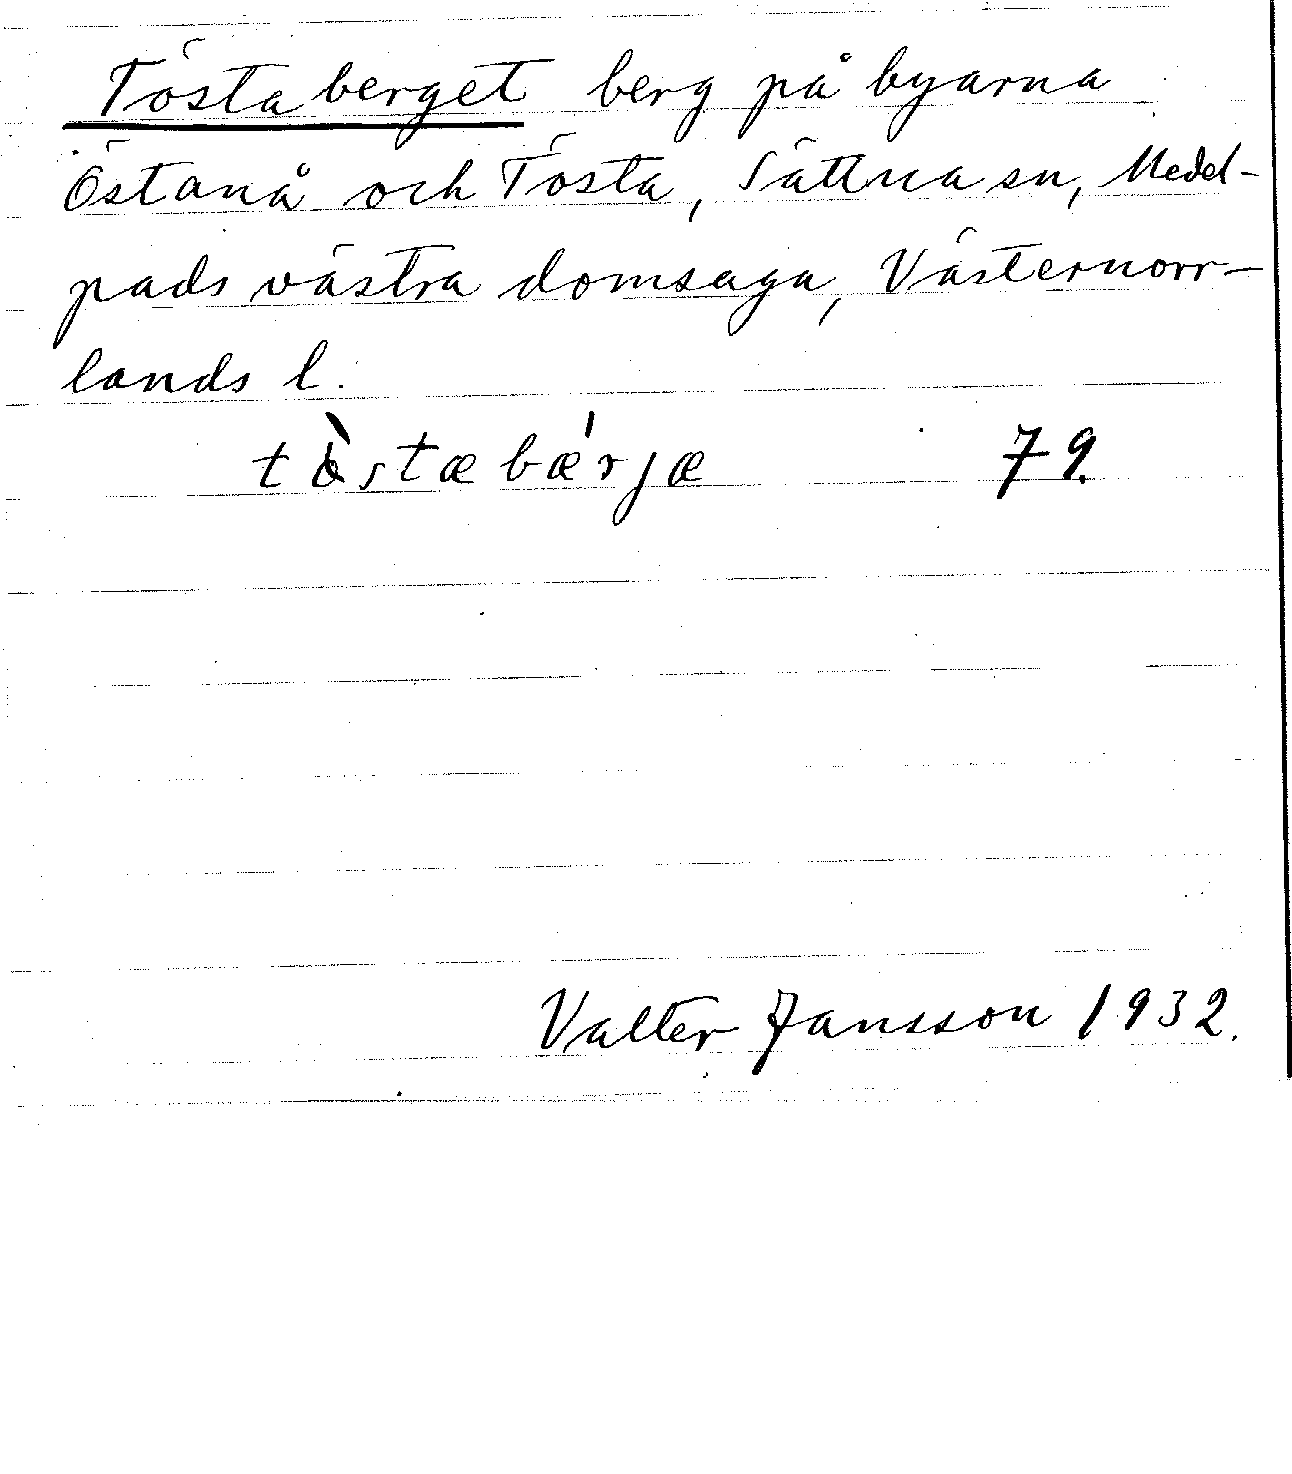 Töstaberget berg på byarna
Östanå och Tösta, Sättna sn, Medel-
pads västra domsaga, Västernorr-
lands l.
tòstæbǽrjæ 79.
Valter Jansson 1932.